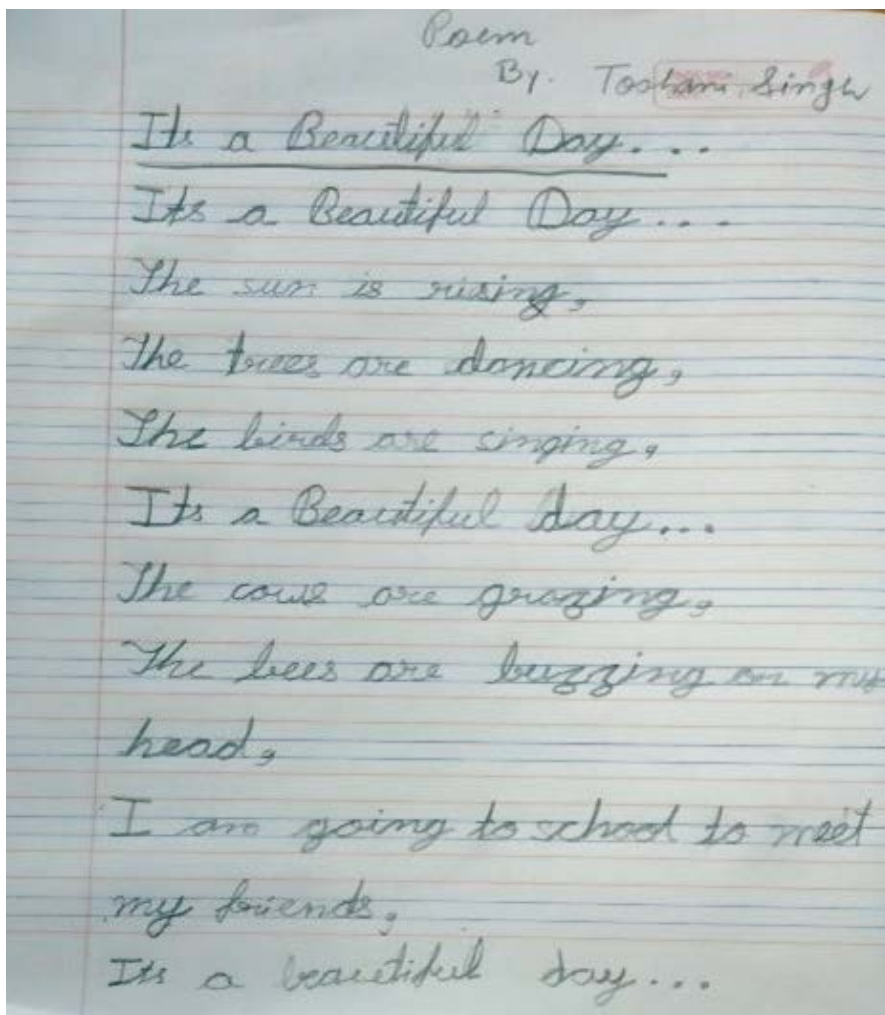 Poem
By. Toshani Singh
Its a Beautiful Day....
Its a Beautiful Day....
The sun is rising,
The trees are dancing,
The birds are singing,
Its a Beautiful day...
The cows are grazing,
The bees are buzzing on my
head,
I am going to school to meet
my friends,
Its a beautiful day...